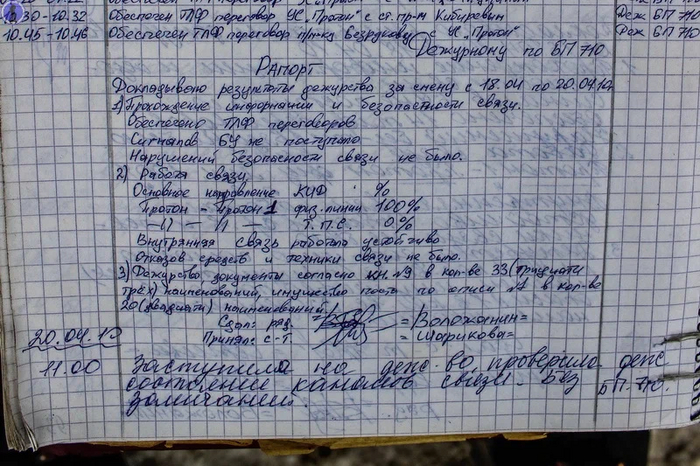 10.30-10.32 Обеспечен ТЛФ переговор УС "Протон" с ст. пр-м Кибиревим Деж БП 710
10.45-10.46 Обеспечен ТЛФ переговор пр-ку Безрукову с УС "Протон" Деж БП 710
Дежурному по БП 710
Рапорт
Докладываю результаты дежурства за смену с 18.04 по 20.04.10
1) Прохождение информации и безопасности связи.
Обеспечено ТЛФ переговоров
Сигналов БУ не поступило
Нарушений безопасности связи не было.
2) Работа связи.
Основное направление КЦФ %
Протон - Протон 1 физ. линии 100%
—//— —//— Т.П.С. 0%
Внутренняя связь работала устойчиво
Отказов средств и техники связи не было.
3) Дежурство документы согласно КН. №9 в кол-ве 33 (тридцати
трёх) наименований, имущество поста по описи №1 в кол-ве
20 (двадцати) наименований.
Сдал: ряд. = Воложанин =
20.04.10 Принял: с-т. = Шарикова =
11.00 Заступила на деж-во, проверила деж
состояние каналов связи. Без БП. 710.
замечаний.